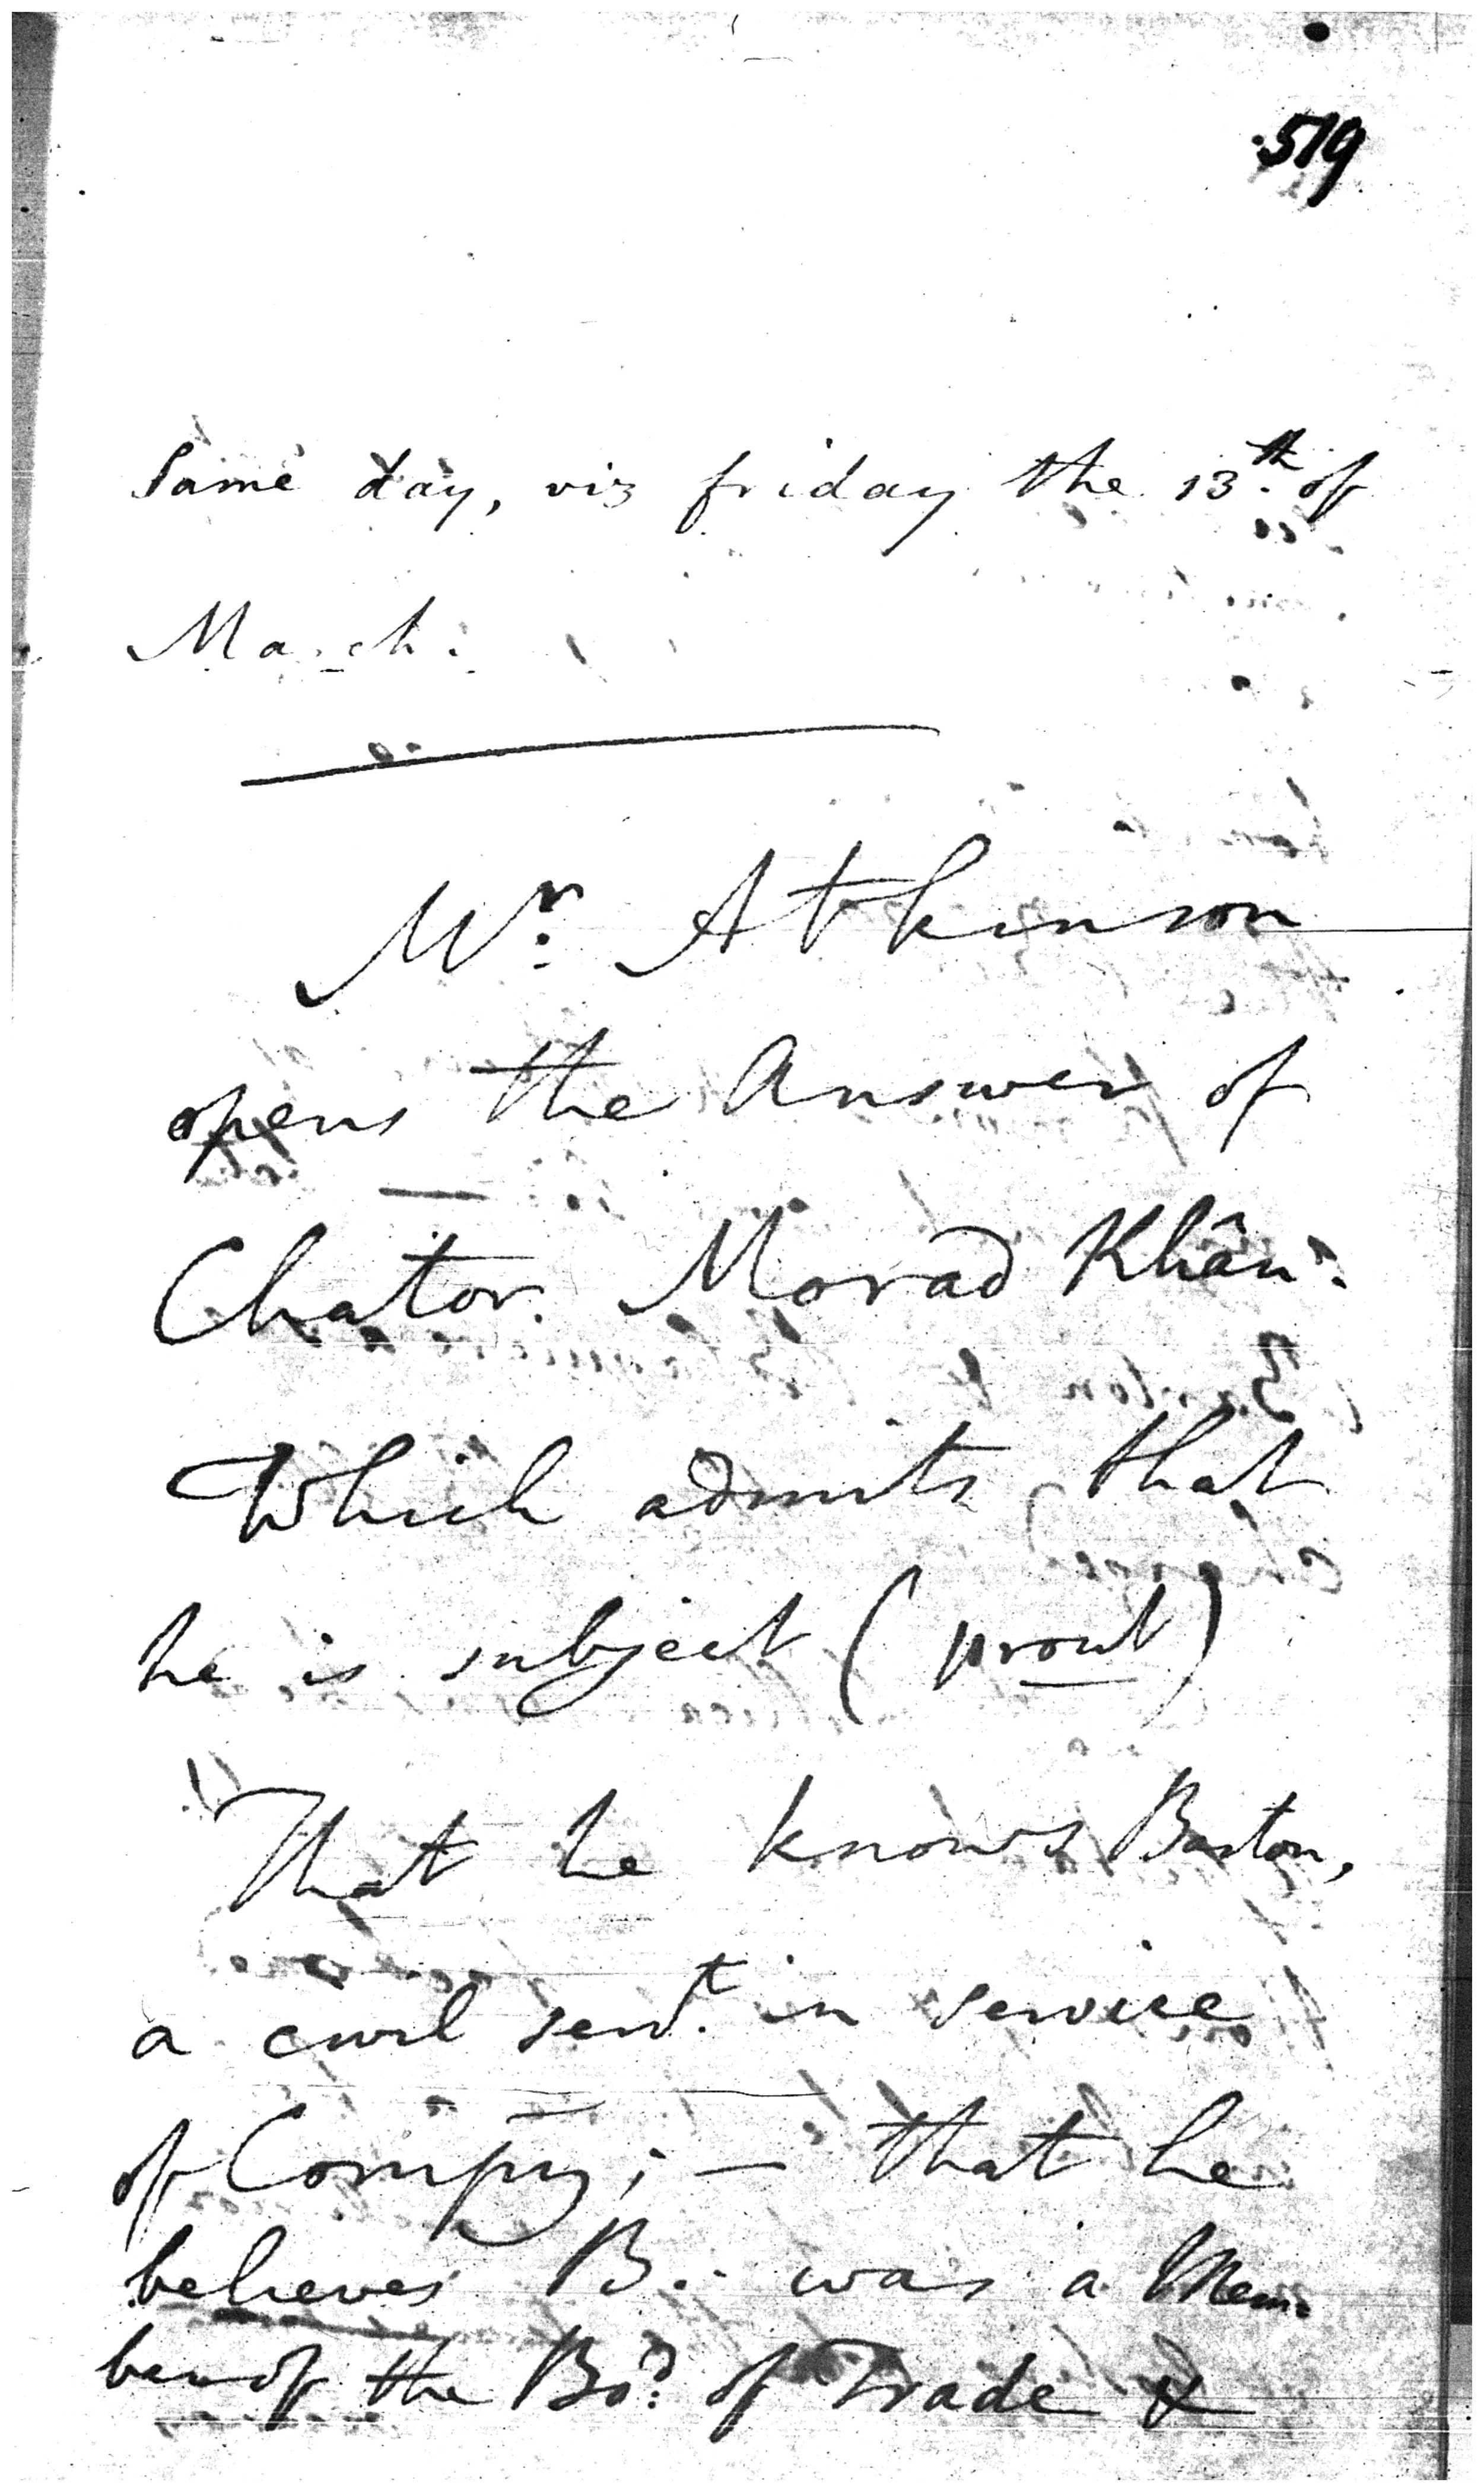 519
Same day, viz friday the 13th. of
March.
Mr. Atkinson
opens the Answer of
Chator. Morad Khân.
Which admits that
he is subject (prout)
That he knows Barton,
a civil servt. in service
of Compy; — that he
believes B. was a Mem-
ber of the Bod. of Trade &